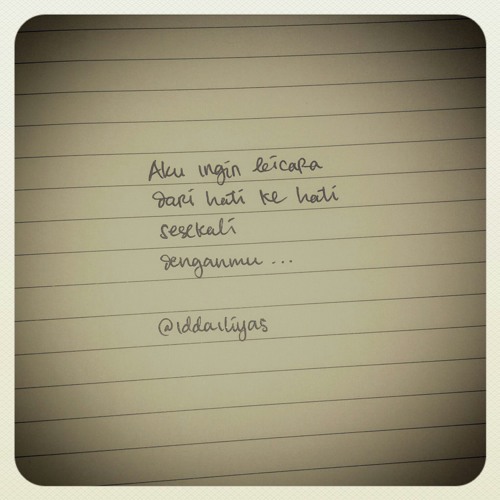 Aku ingin bicara
dari hati ke hati
sesekali
denganmu ...
@iddailiyas